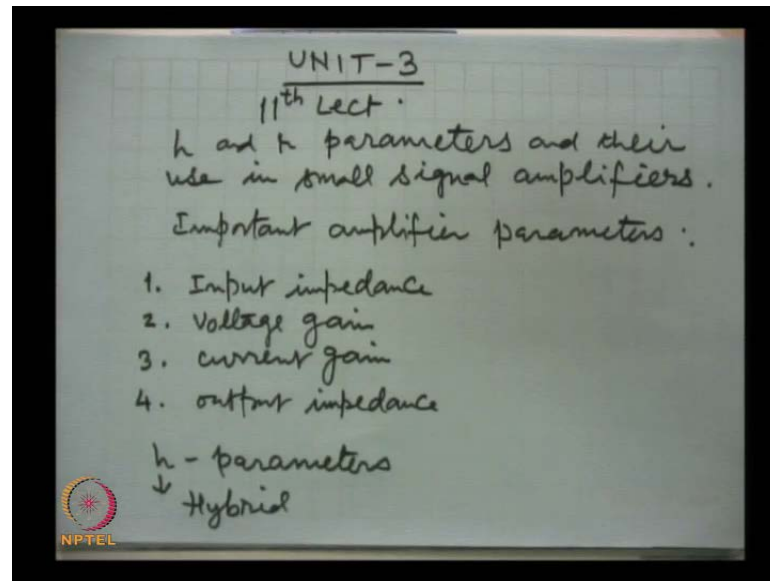 UNIT-3
11th Lect.
h and r parameters and their
use in small signal amplifiers.
Important amplifier parameters :
1. Input impedance
2. voltage gain
3. current gain
4. output impedance
h - parameters
↓
Hybrid
NPTEL